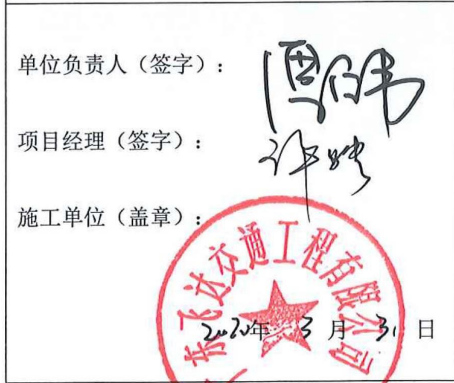 单位负责人（签字）：
项目经理（签字）：
施工单位（盖章）：
广东飞达交通工程有限公司
2020年 3 月 31 日